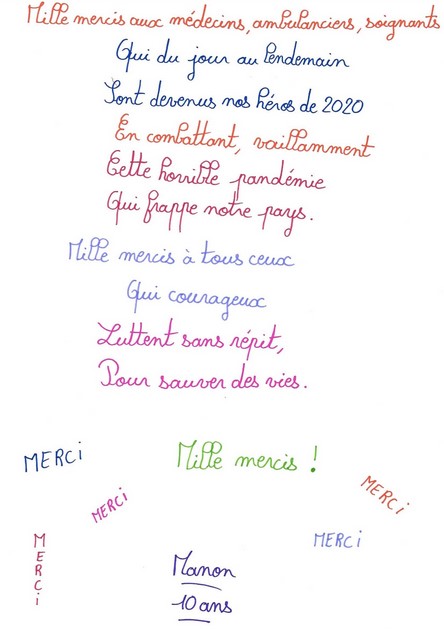 Mille mercis aux médecins, ambulanciers, soignants
Qui du jour au lendemain
Sont devenus nos héros de 2020
En combattant, vaillamment
Cette horrible pandémie
Qui frappe notre pays.
Mille mercis à tous ceux
Qui courageux
Luttent sans répit,
Pour sauver des vies.
MERCi
Mille mercis !
MERCi
MERCi
MERCi
MERCi
Manon
10 ans